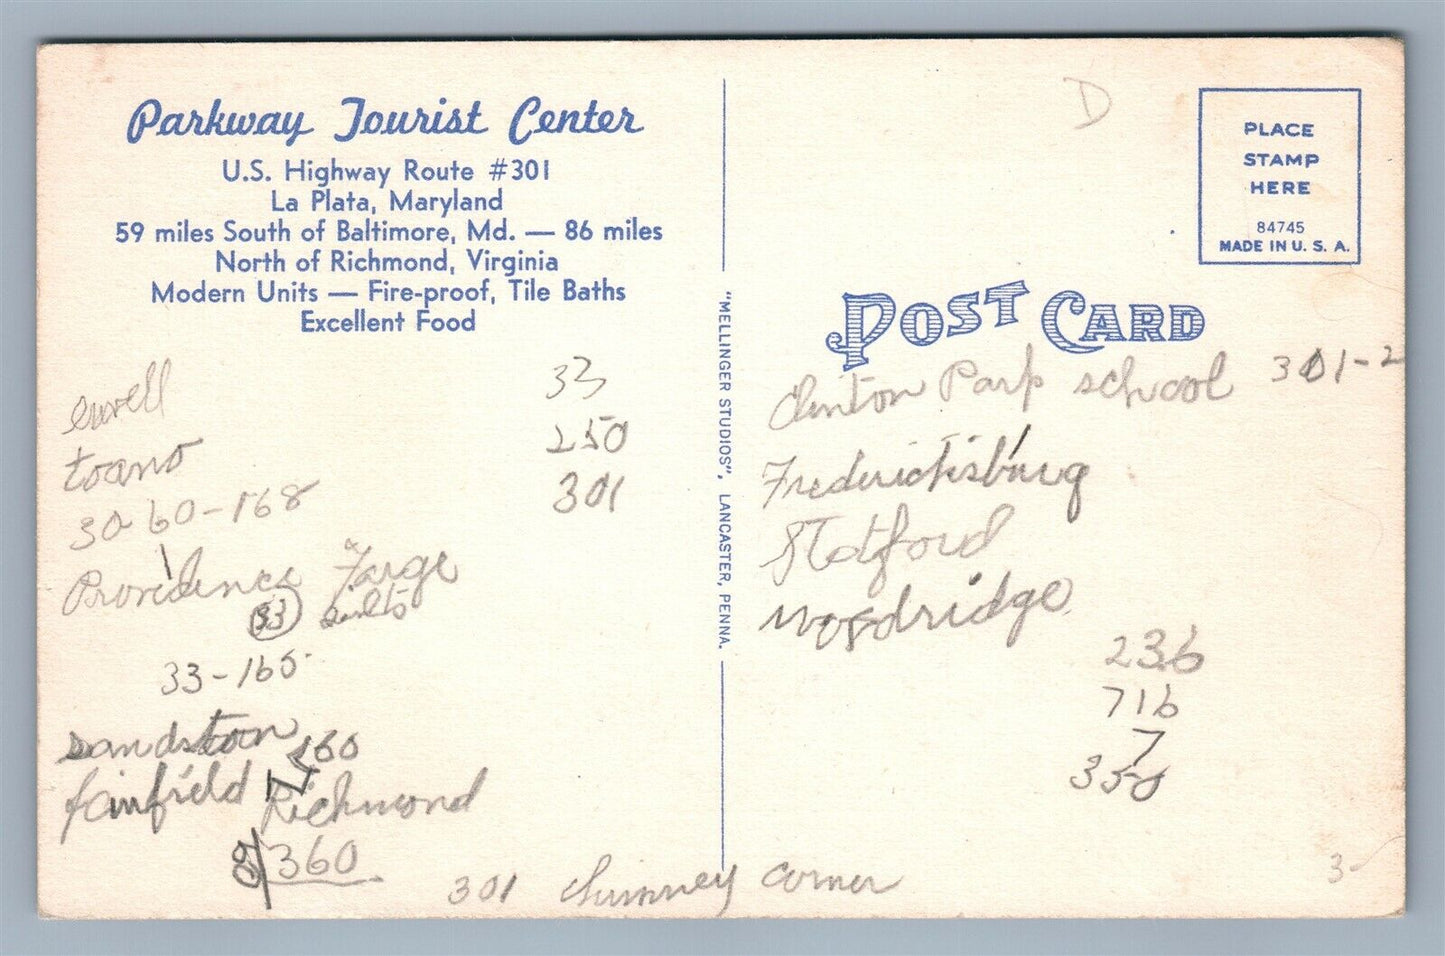 Parkway Tourist Center
U.S. Highway Route #301
La Plata, Maryland
59 miles South of Baltimore, Md. — 86 miles
North of Richmond, Virginia
Modern Units — Fire-proof, Tile Baths
Excellent Food
ewell
toano
30-60-168
Providence Farge
33
33-165
Sandston
fairfield
Richmond
360
33
250
301
301 chimney corner
"MELLINGER STUDIOS", LANCASTER, PENNA.
D
PLACE
STAMP
HERE
84745
MADE IN U. S. A.
POST CARD
Clinton Park school 301-2
Fredericksburg
Statford
Woodridge
236
716
7
350
3-